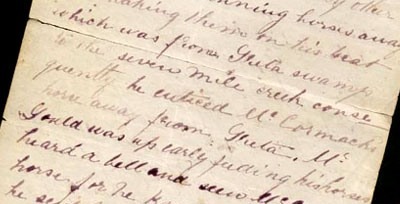 running horses away
making them on his beat
which was from Greta swamp
to the seven mile creek conse
quently he enticed McCormacks
horse away from Greta. Mr
Gould was up early feeding his horses
heard a bell and saw McC
horse for he
he